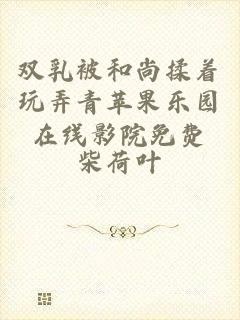 双乳被和尚揉着
玩弄青苹果乐园
在线影院免费
柴荷叶